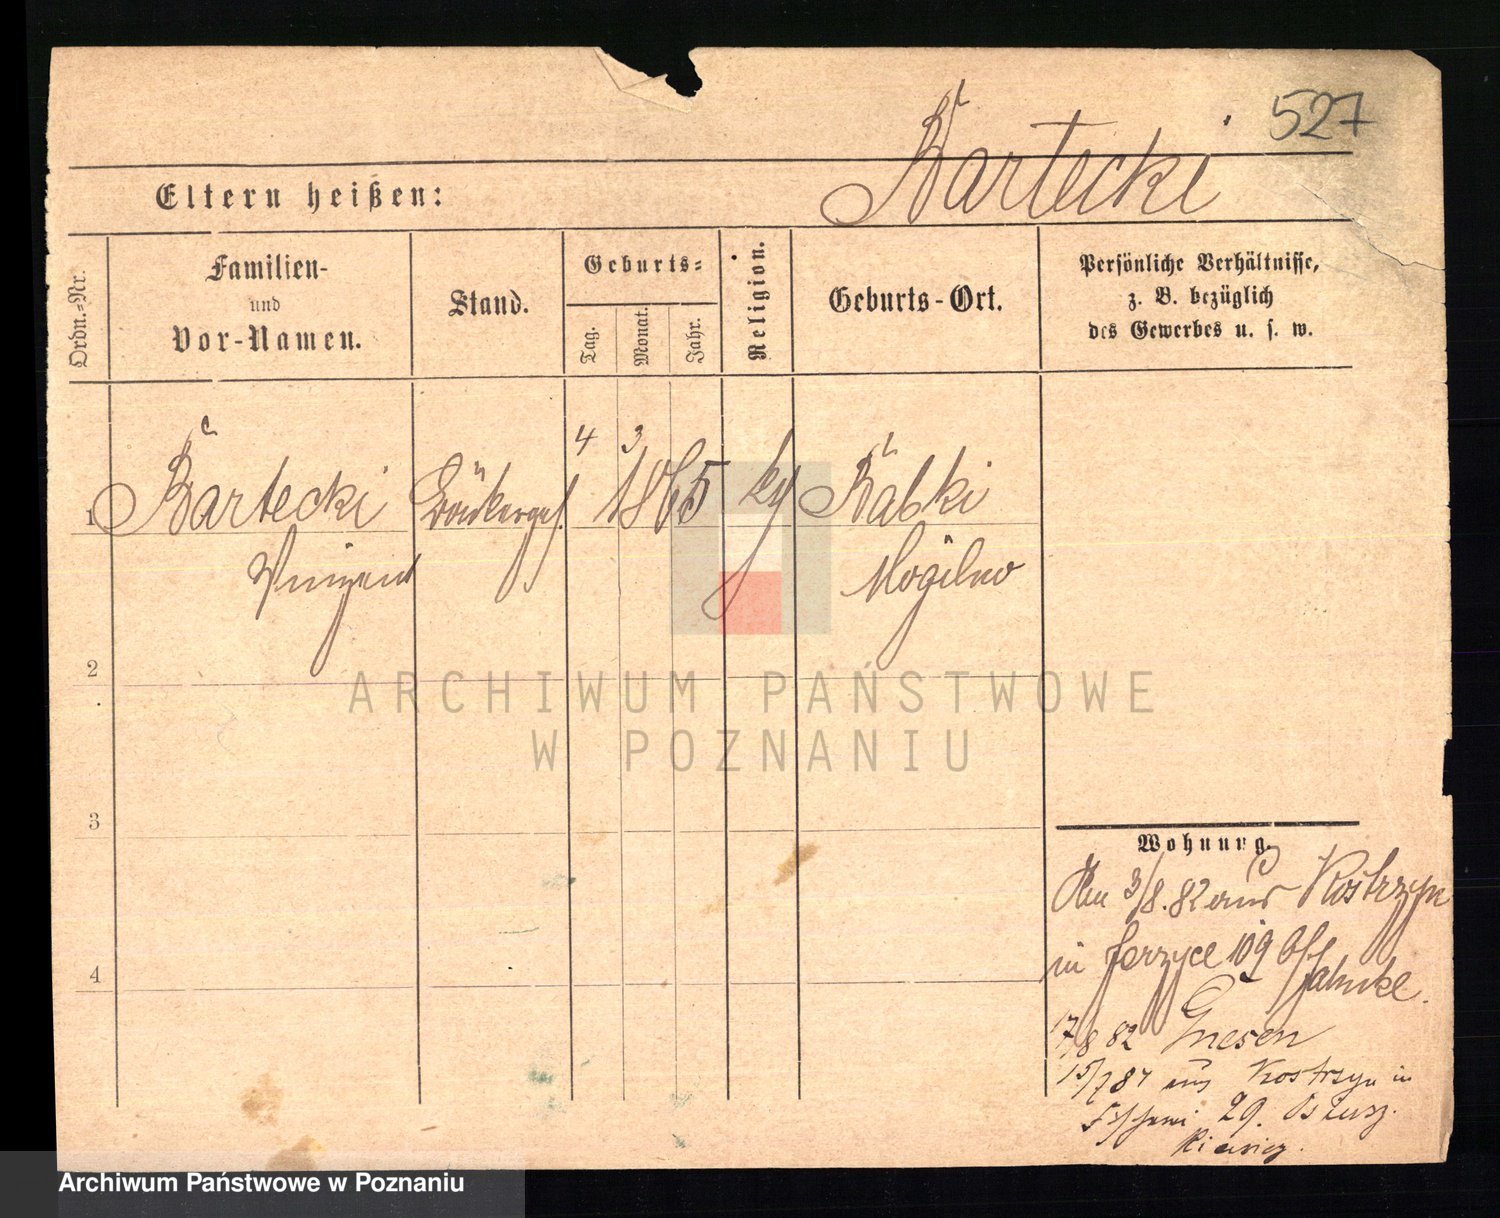 527
Bartecki
Eltern heißen:
Ordn.-Nr.
Familien-
und
Vor-Namen.
Stand.
Geburts-
Tag.
Monat.
Jahr.
Religion.
Geburts-Ort.
Persönliche Verhältnisse,
z. B. bezüglich
des Gewerbes u. s. w.
1 Bartecki Bäckerges. 4 3 1865 Babki
Vinzent Mogilno
2
3
4
Wohnung.
Am 3/8. 82 aus Kostrzyn
in Jerzyce 109 Jahnke.
17/8 82 Gnesen
15/7 87 aus Kostrzyn in
29.
ARCHIWUM PAŃSTWOWE
W POZNANIU
Archiwum Państwowe w Poznaniu